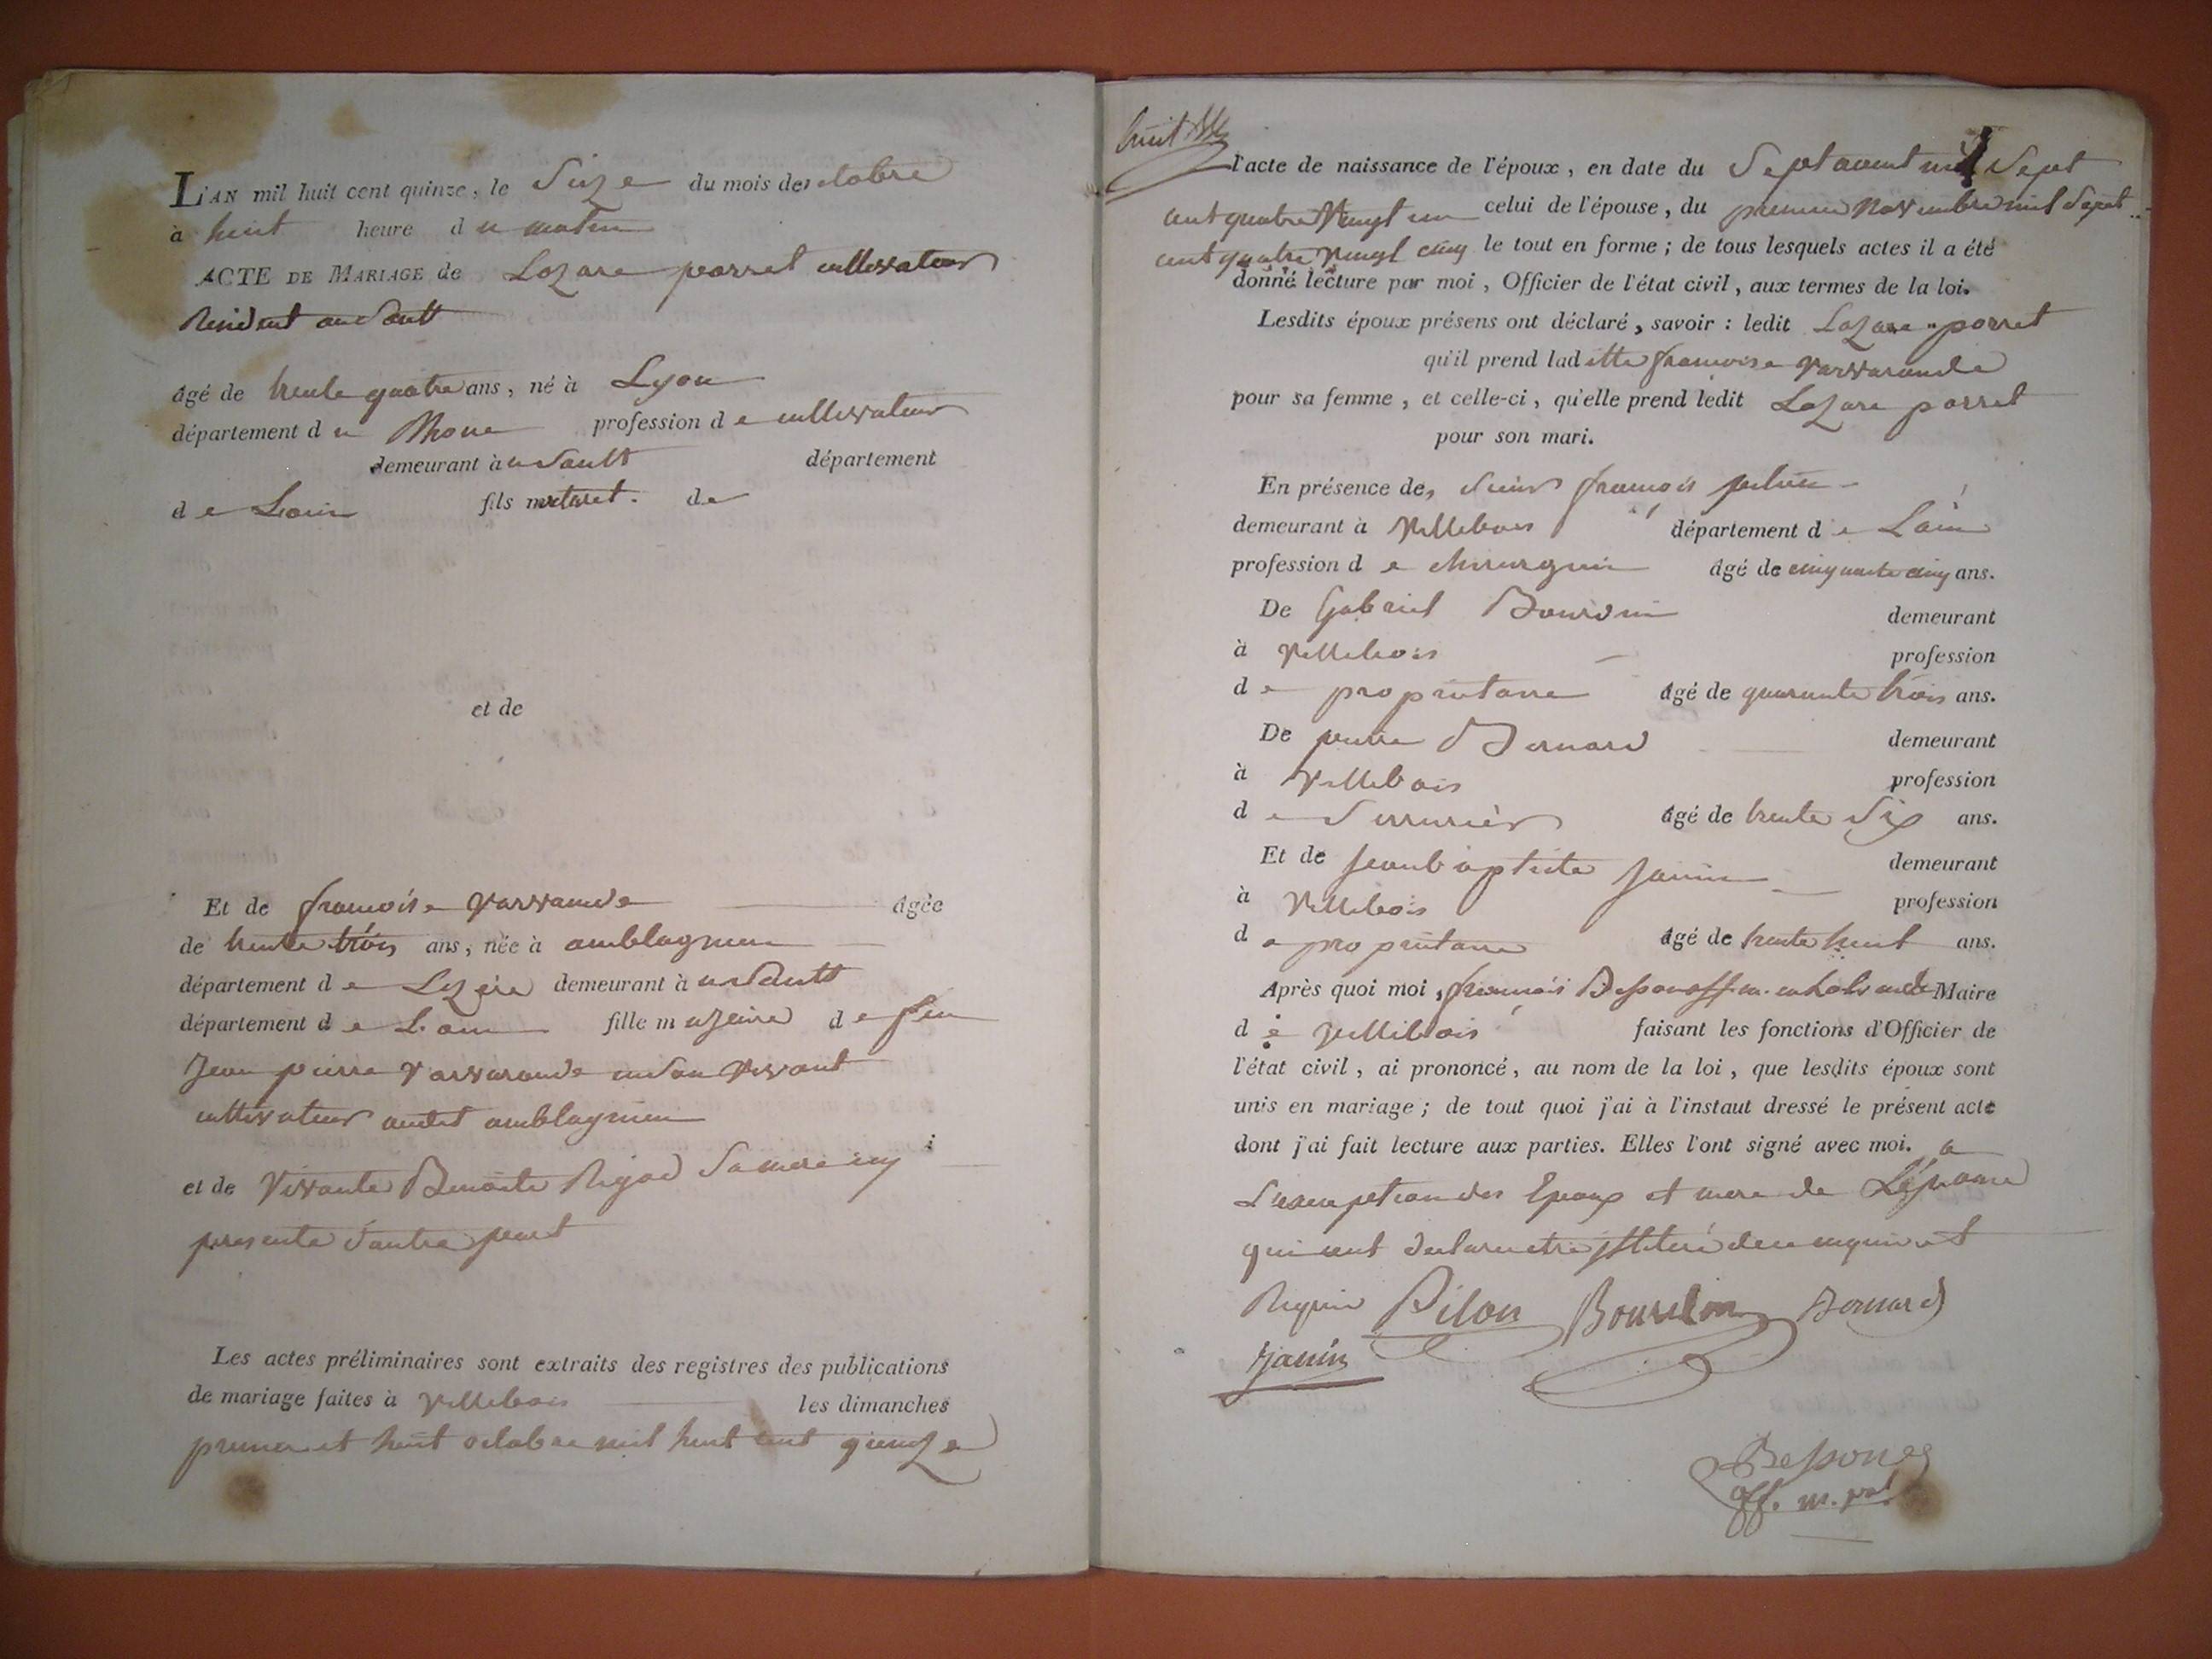 L'AN mil huit cent quinze, le Seize du mois de octobre
à huit heure du matin
ACTE DE MARIAGE de Lazare porret cultivateur
Resident au Sault
âgé de trente quatre ans, né à Lyon
département du Rhone profession de cultivateur
demeurant à u Sault département
de Lain fils naturel de
et de
Et de francoise varvarande âgée
de trente trois ans, née à amblagnieu
département de Lizère demeurant à u Sault
département de Lain fille majeure de feu
Jean pierre varvarande en son vivant
cultivateur audit amblagnieu
et de vivante Benoite Rigod Sa mere icy
presente d'autre part
Les actes préliminaires sont extraits des registres des publications
de mariage faites à villebois les dimanches
premier et huit octobre mil huit cent quinze
huit
l'acte de naissance de l'époux, en date du Sept aout mil Sept
cent quatre vingt un celui de l'épouse, du premier Novembre mil Sept
cent quatre vingt cinq le tout en forme; de tous lesquels actes il a été
donné lecture par moi, Officier de l'état civil, aux termes de la loi.
Lesdits époux présens ont déclaré, savoir: ledit Lazare porret
qu'il prend laditte francoise varvarande
pour sa femme, et celle-ci, qu'elle prend ledit Lazare porret
pour son mari.
En présence de, Sieur françois
demeurant à villebois département de Lain
profession de chirurgien âgé de cinquante cinq ans.
De Gabriel Bourdin demeurant
à villebois profession
de proprietaire âgé de quarante trois ans.
De pierre Bernard demeurant
à villebois profession
de Serrurier âgé de trente Six ans.
Et de Jean baptiste Janin demeurant
à villebois profession
de proprietaire âgé de trente huit ans.
Après quoi moi, francois Maire
de villebois faisant les fonctions d'Officier de
l'état civil, ai prononcé, au nom de la loi, que lesdits époux sont
unis en mariage; de tout quoi j'ai à l'instant dressé le présent acte
dont j'ai fait lecture aux parties. Elles l'ont signé avec moi. a
L'exception des Epoux et mere de L'épouse
qui ont declaré etre illiteré de ce enquis et
Requis Pilon Bourdin Bernard
Janin
off. m. pal